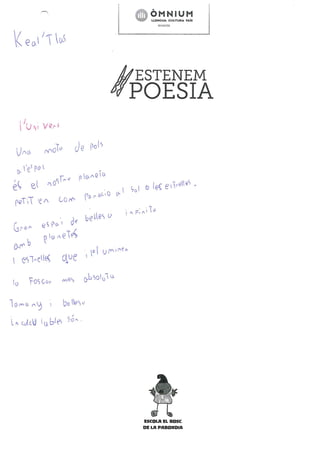 ÒMNIUM
LLENGUA CULTURA PAÍS
Keal'T las
ESTENEM
POESIA
l'Univers
Una mota de pols
a l'espai
és el nostre planeta
petit en comparació al sol o les estrelles.
Gran espai de bellesa infinita
amb planetes
i estrelles que il·luminen
la foscor més absoluta
Tamany i bellesa
incalculables són.
ESCOLA EL BOSC
DE LA PABORDIA